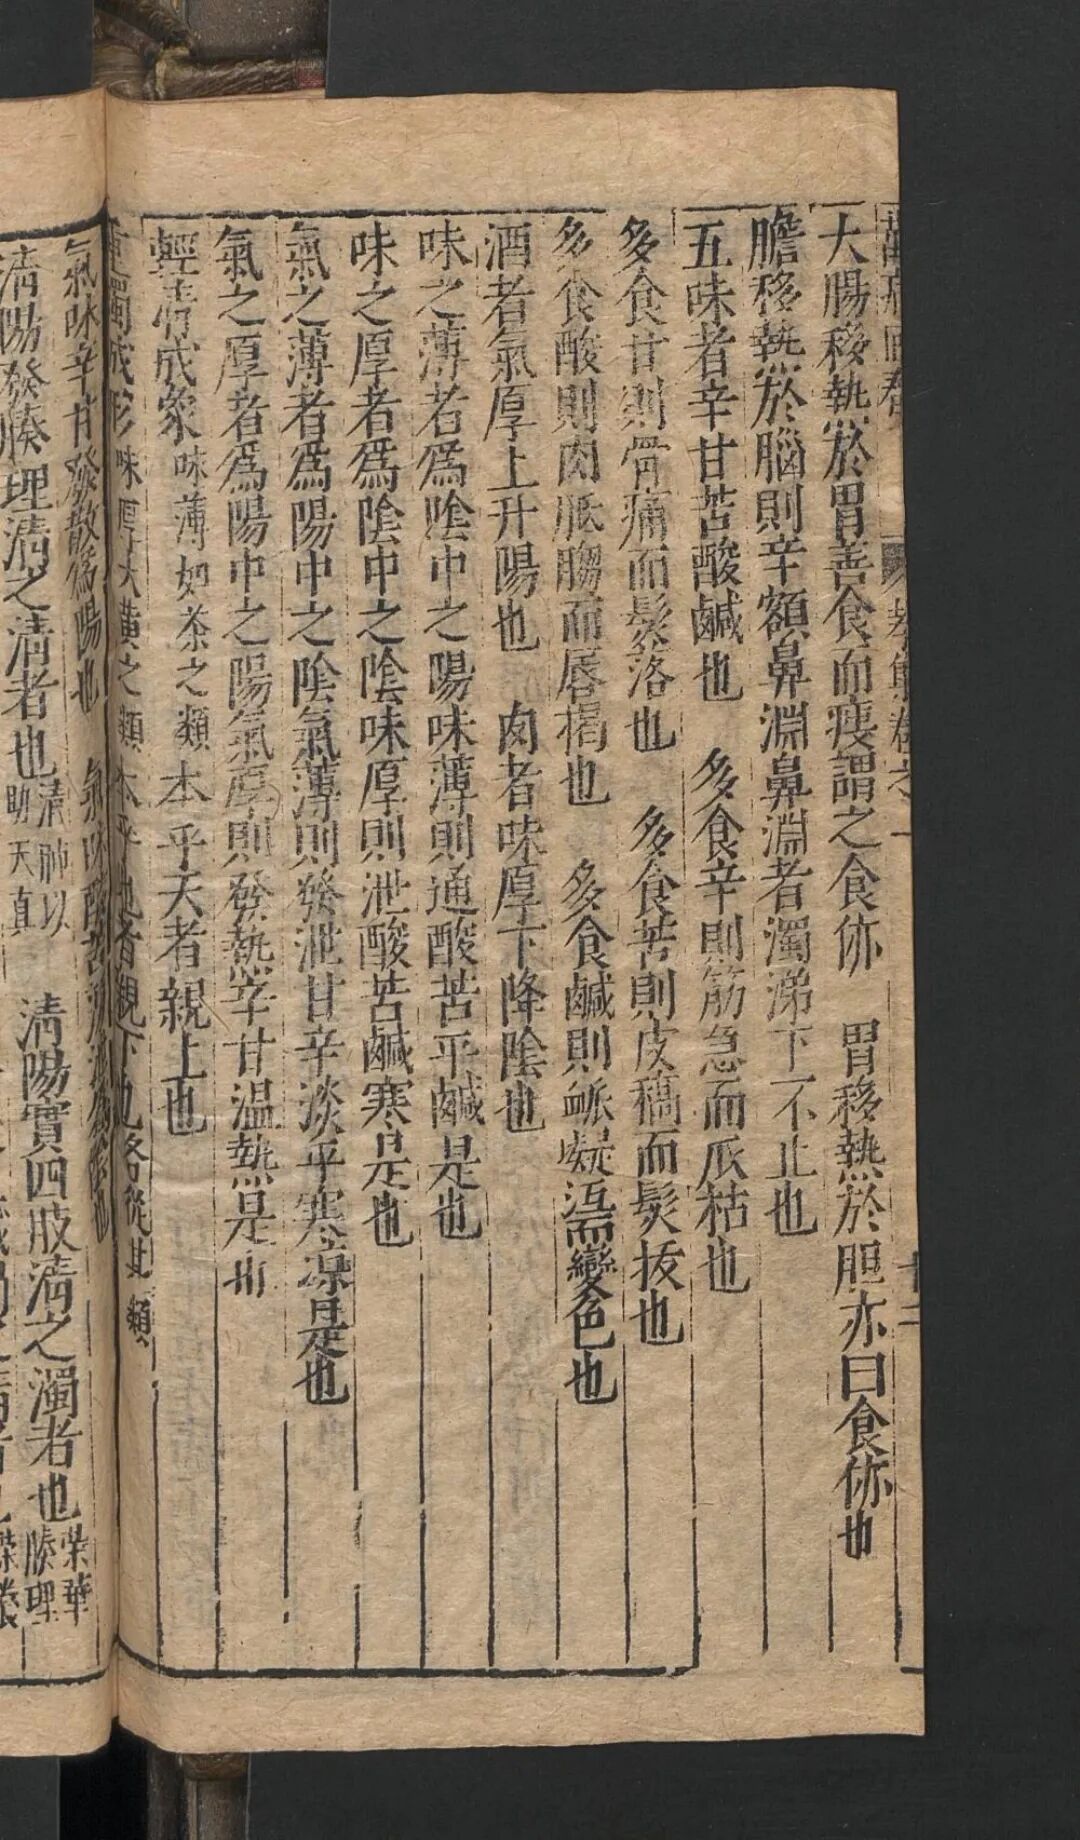 萬病回春
大腸移熱於胃善食而瘦謂之食㑊　胃移熱於胆亦曰食㑊也
膽移熱於腦則辛額鼻淵鼻淵者濁涕下不止也
五味者辛甘苦酸鹹也　多食辛則筋急而爪枯也
多食甘則骨痛而髮落也　多食苦則皮槁而髮拔也
多食酸則肉胝䐢而唇揭也　多食鹹則脈凝泣而變色也
酒者氣厚上升陽也　肉者味厚下降陰也
味之薄者爲陰中之陽味薄則通酸苦平鹹是也
味之厚者爲陰中之陰味厚則泄酸苦鹹寒是也
氣之薄者爲陽中之陰氣薄則發泄甘辛淡平寒凉是也
氣之厚者爲陽中之陽氣厚則發熱辛甘温熱是也
輕清成象味薄如茶之類本乎天者親上也
重濁成形味厚大黃之類本乎地者親下也各從其類
氣味辛甘發散爲陽也　氣味酸苦涌泄爲陰也
清陽發腠理清之清者也清肺以助天真　清陽實四肢清之濁者也榮華腠理